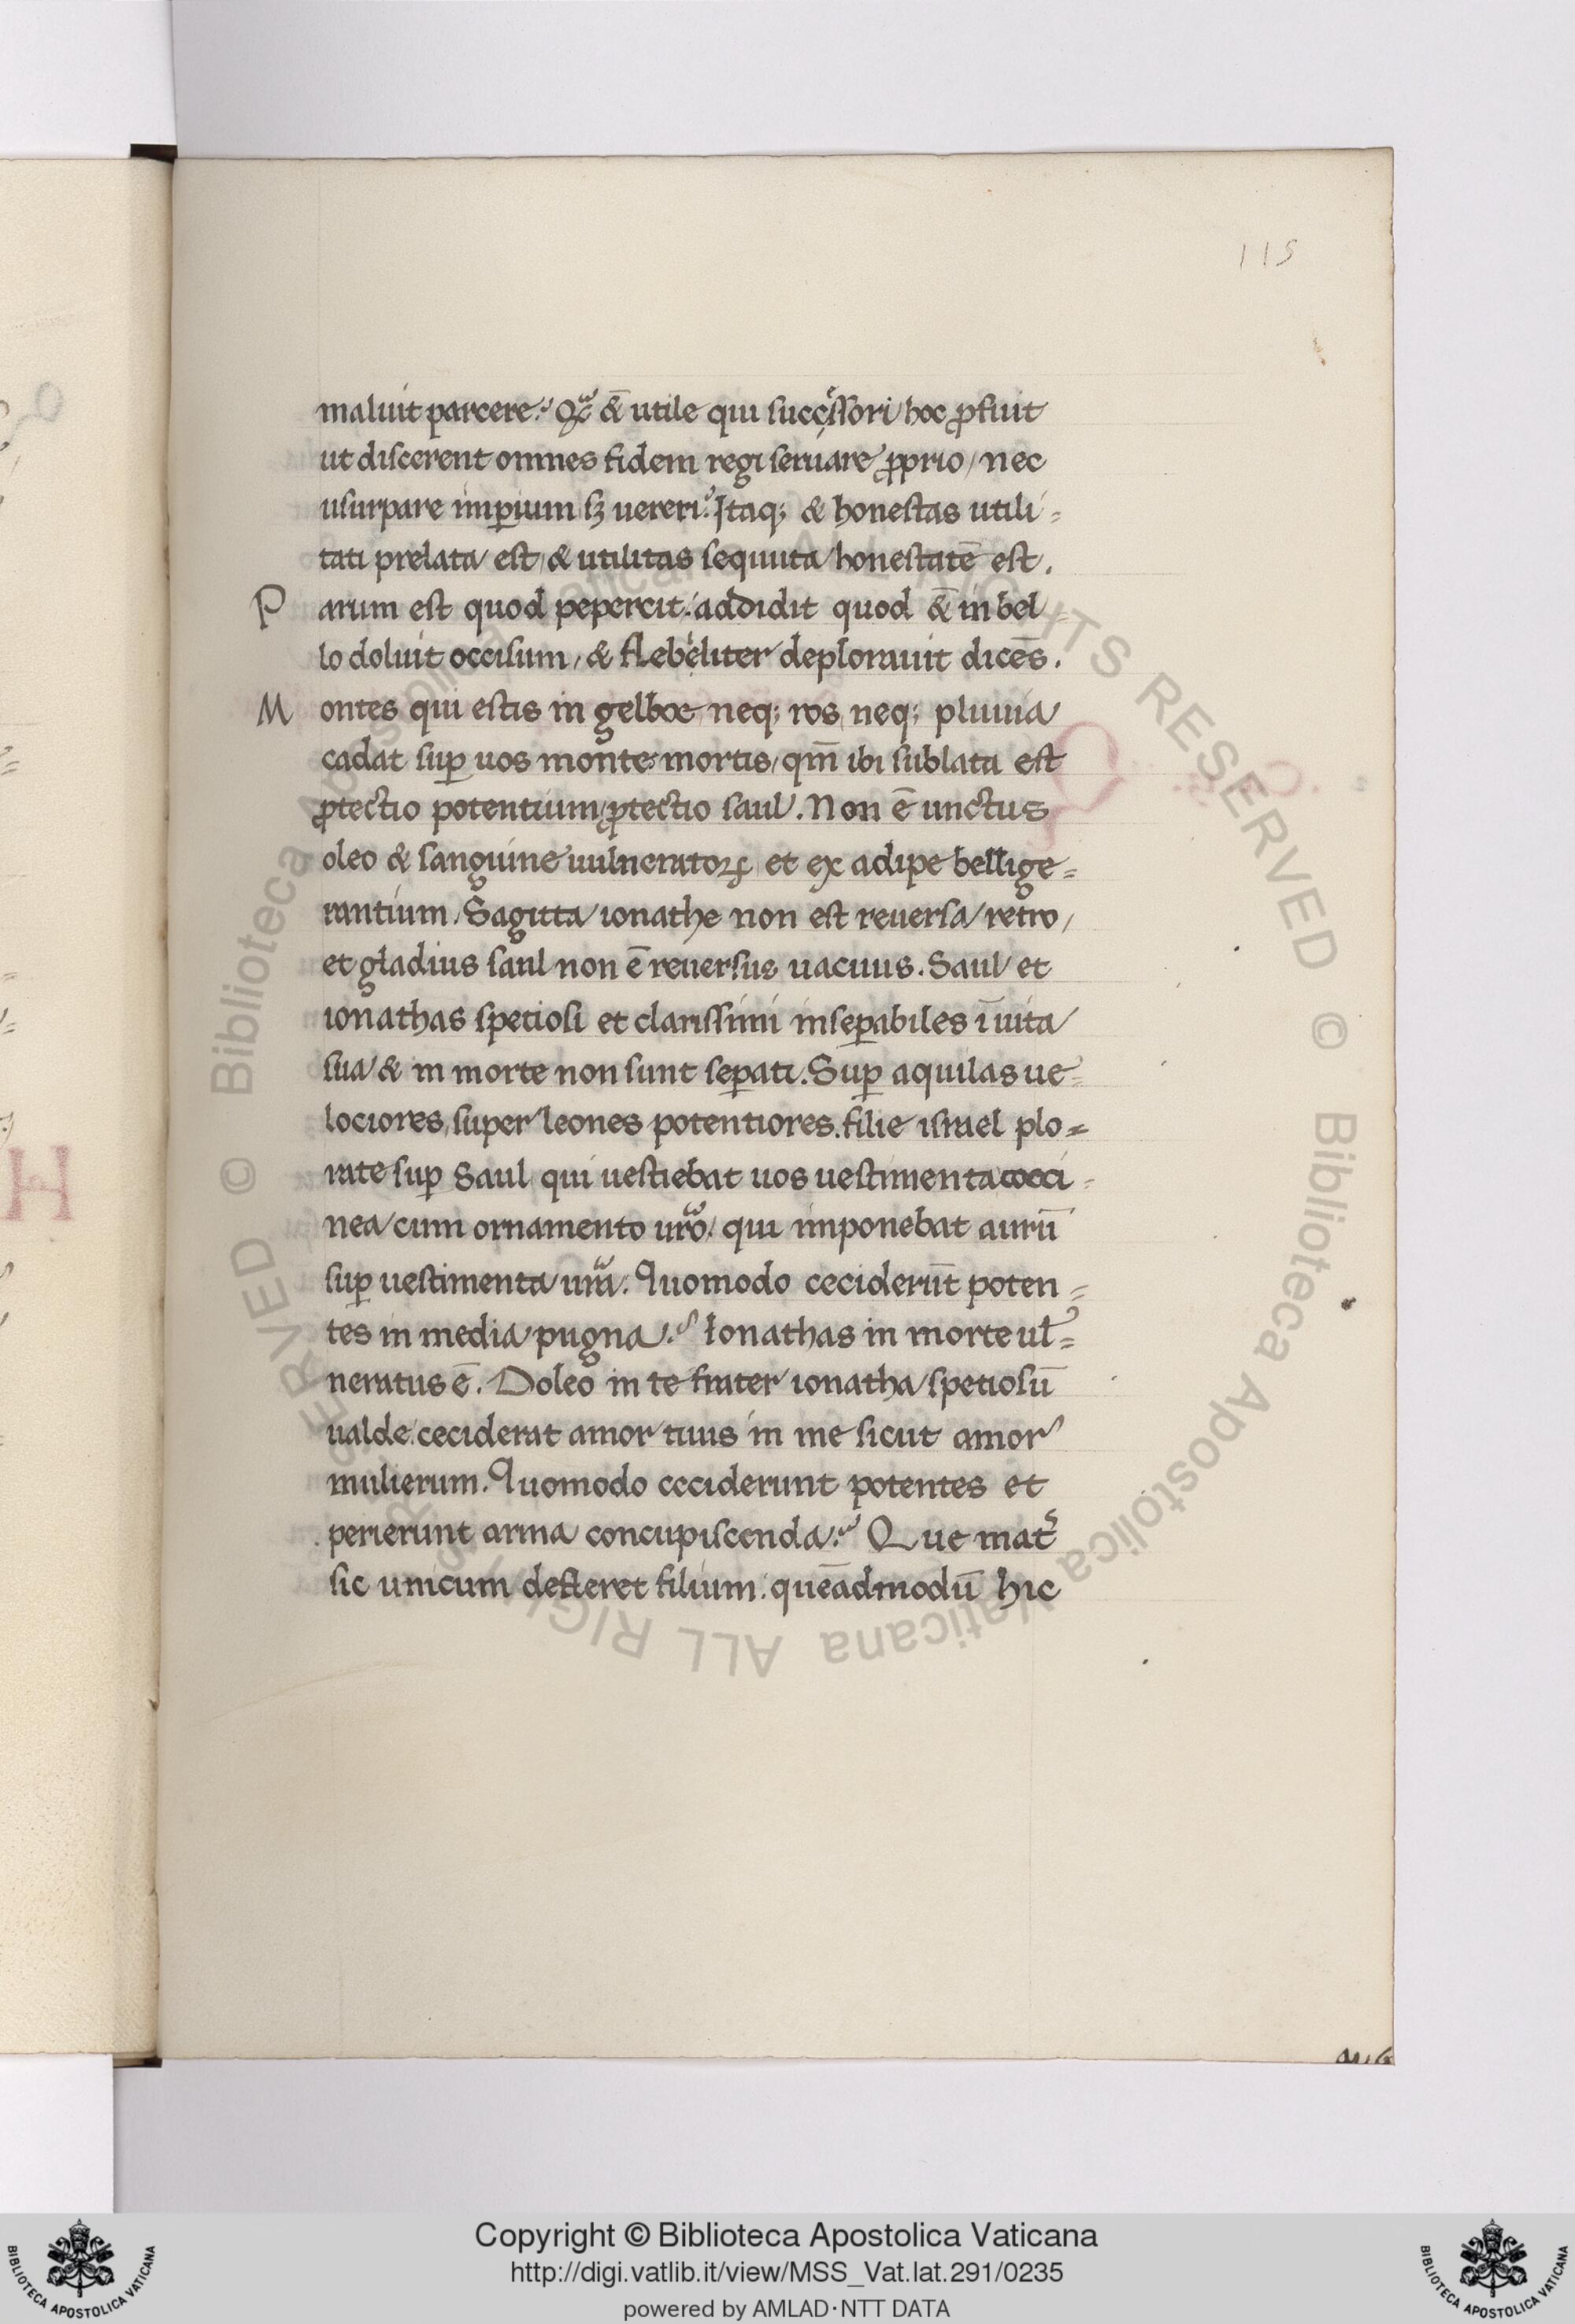 115
maluit parcere. Qᷓ & utile qui succẹssori hoc ꝓfuit
ut discerent omnes fidem regi seruare ꝓprio, nec
usurpare imꝑium sꝫ uereri. Itaq; & honestas utili-
tati prelata est, & utilitas sequuta honestatē est.
P arum est quod pepercit: addidit quod & in bel
lo doluit occisum, & flebẹliter deplorauit dicēs.
M ontes qui estis in gelboe neq; ros neq; pluuia
cadat suꝑ uos montes mortis, qm̄ ibi sublata est
ꝓtectio potentium, ꝓtectio saul. Non ē unctus
oleo & sanguine uulneratoꝝ et ex adipe bellige-
rantium. Sagitta ionathe non est reuersa retro,
et gladius saul non ē reuersus uacuus. Saul et
ionathas spetiosi et clarissimi inseꝑabiles ī uita
sua & in morte non sunt seꝑati. Suꝑ aquilas ue-
lociores, super leones potentiores. filie israel plo-
rate suꝑ Saul qui uestiebat uos uestimenta cocci-
nea cum ornamento ur̄o, qui imponebat aurū
suꝑ uestimenta ur̄a. Quomodo ceciderūt poten-
tes in media pugna? Ionathas in morte ul̓-
neratus ē. Doleo in te frater ionatha spetiosū
ualde. ceciderat amor tuus in me sicut amor
mulierum. Quomodo ceciderunt potentes et
perierunt arma concupiscenda? Que mat̓
sic unicum defleret filium. quēadmodū hic
© Biblioteca Apostolica Vaticana ALL RIGHTS RESERVED
© Biblioteca Apostolica Vaticana ALL RIGHTS RESERVED
Copyright © Biblioteca Apostolica Vaticana
http://digi.vatlib.it/view/MSS_Vat.lat.291/0235
powered by AMLAD·NTT DATA
BIBLIOTECA APOSTOLICA VATICANA
BIBLIOTECA APOSTOLICA VATICANA